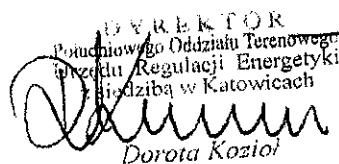 DYREKTOR
Południowego Oddziału Terenowego
Urzędu Regulacji Energetyki
siedzibą w Katowicach
Dorota Kozioł